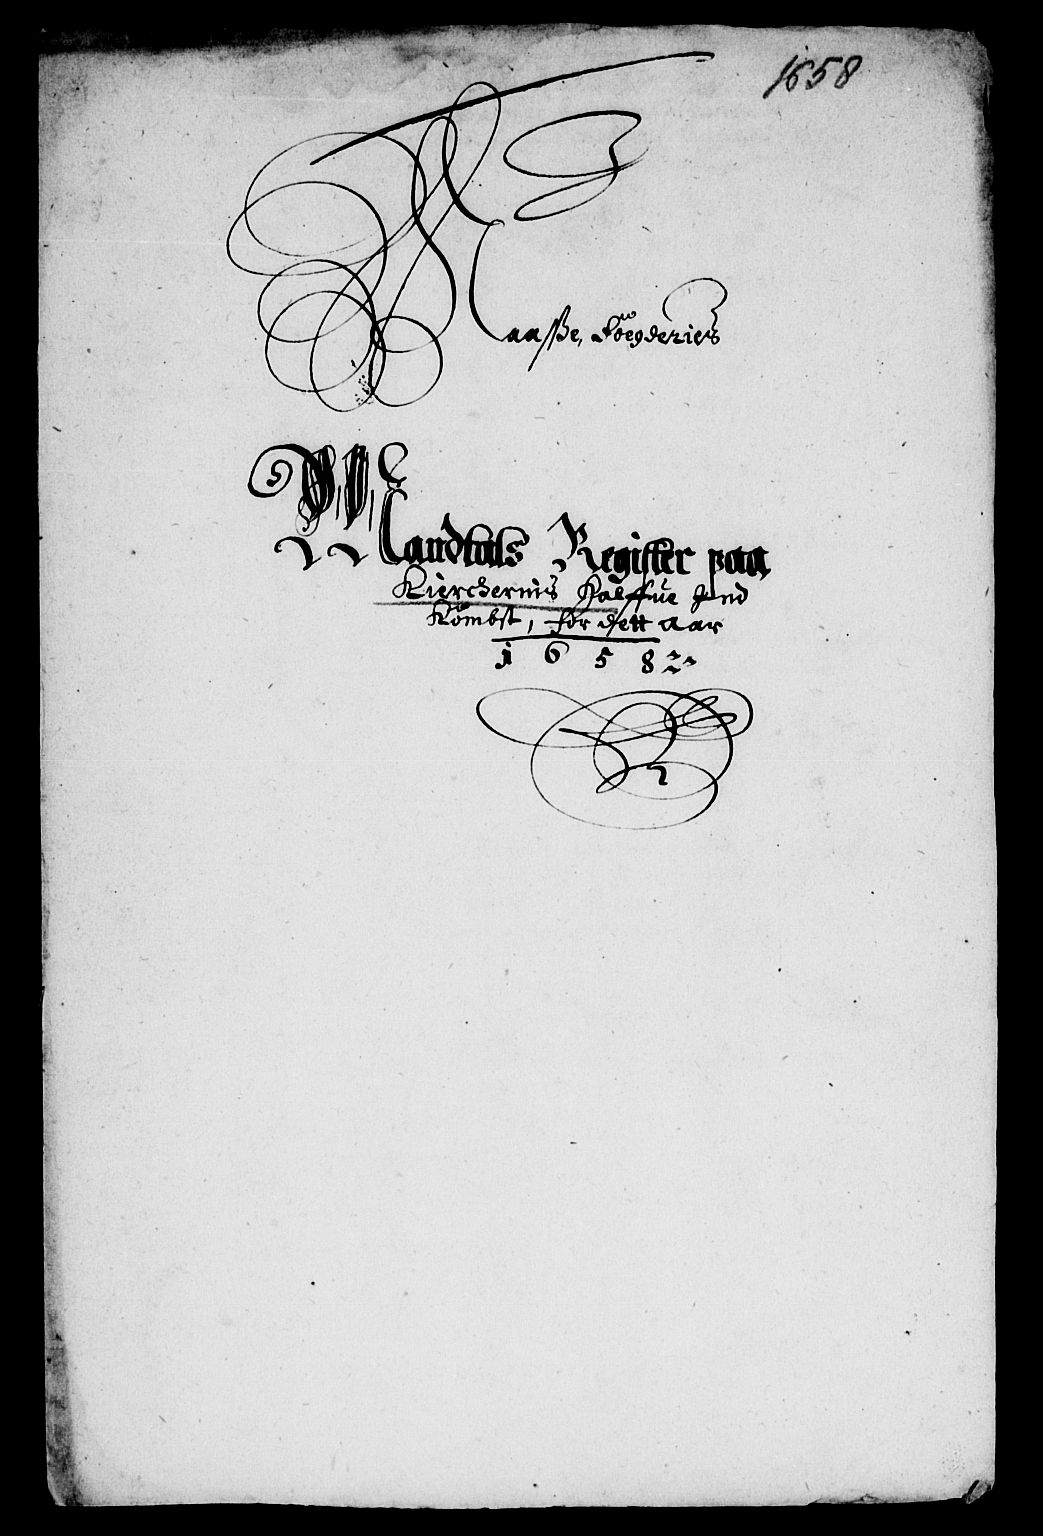 1658
Raaffße, Foegderies
Mandtals Register paa
Kierchernis Halffue Ind
Kombst, for dett aar
1658